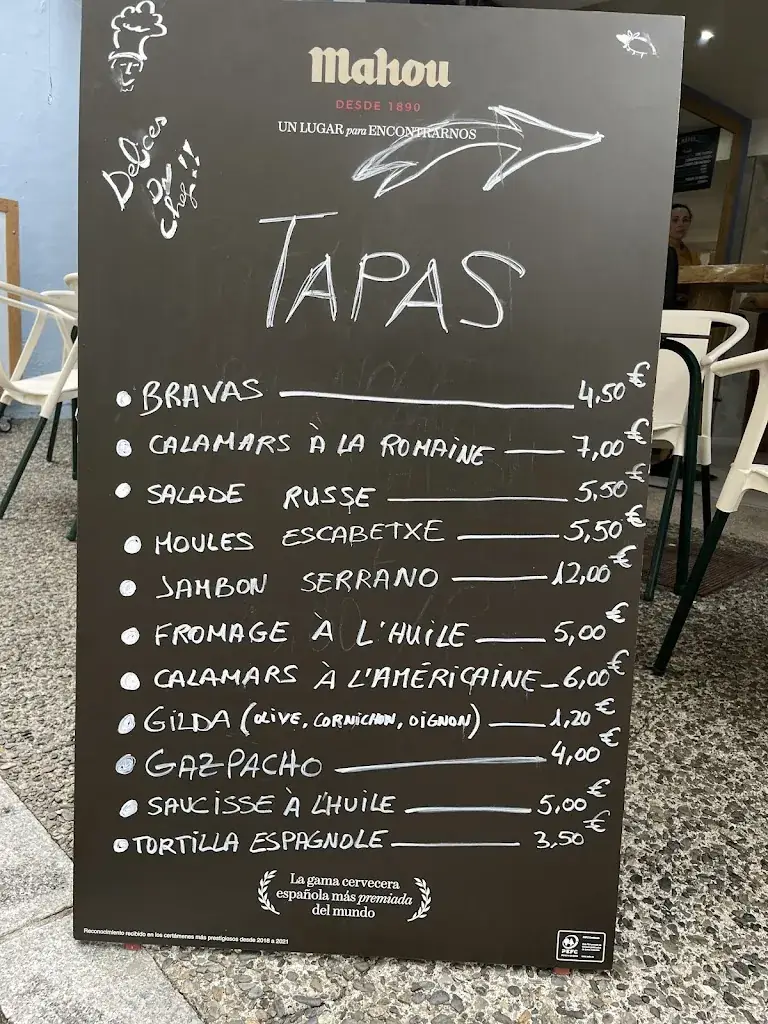 Mahou
DESDE 1890
UN LUGAR para ENCONTRARNOS
Delices
Du
Chef!!
TAPAS
BRAVAS 4,50 €
CALAMARS À LA ROMAINE 7,00 €
SALADE RUSSE 5,50 €
MOULES ESCABETXE 5,50 €
JAMBON SERRANO 12,00 €
FROMAGE À L'HUILE 5,00 €
CALAMARS À L'AMÉRIÇAINE 6,00 €
GILDA (OLIVE, CORNICHON, OIGNON) 1,20 €
GAZPACHO 4,00 €
SAUCISSE À L'HUILE 5,00 €
TORTILLA ESPAGNOLE 3,50 €
La gama cervecera
española más premiada
del mundo
Reconocimiento recibido en los certámenes más prestigiosos desde 2018 a 2021
PEFC